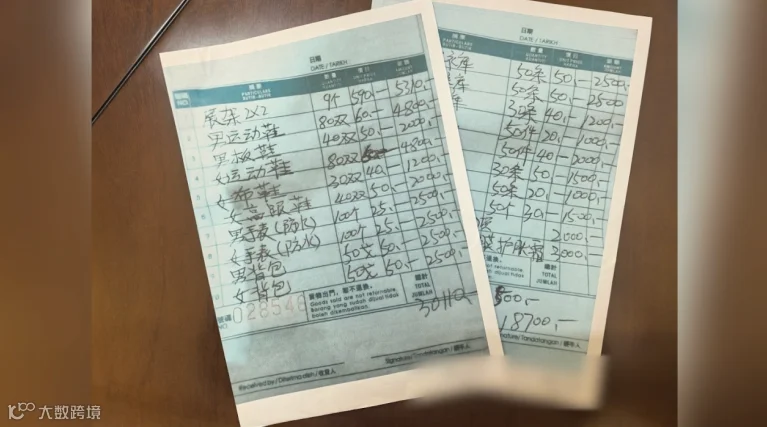 日期
DATE / TARIKH
摘要
PARTICULARS
BUTIR-BUTIR
數量
單價
銀額
NO.
展架2X2 9个 590.- 5310.-
男运动鞋 80双 60.- 4800.-
男板鞋 40双 50.- 2000.-
女运动鞋 80双 60.- 4800.-
女布鞋 30双 40.- 1200.-
女高跟鞋 40双 50.- 2000.-
男手表(防水) 100个 25.- 2500.-
女手表(防水) 100个 25.- 2500.-
男背包 50 50.- 2500.-
女背包 50 50.- 2500.-
028546
貨物出門，概不退換。
Goods sold are not returnable.
Barang yang sudah dijual tidak
boleh dikembalikan.
總計
TOTAL
JUMLAH
30110.-
Received by / Diterima oleh / 收貨人
Signature / Tandatangan / 經手人
日期
DATE / TARIKH
摘要
PARTICULARS
BUTIR-BUTIR
數量
單價
銀額
50条 50.- 2500.-
50条 50.- 2500
30条 40.- 1200.-
50件 1000.-
50件 40.- 2000.-
30条 50.- 1500.-
50条 20.- 1000.-
50个 30.- 1500.-
2000.-
护肤霜 3000.-
退換。
not returnable.
dijual tidak
總計
TOTAL
JUMLAH
500.-
18700.-
Signature / Tandatangan / 經手人
大数跨境